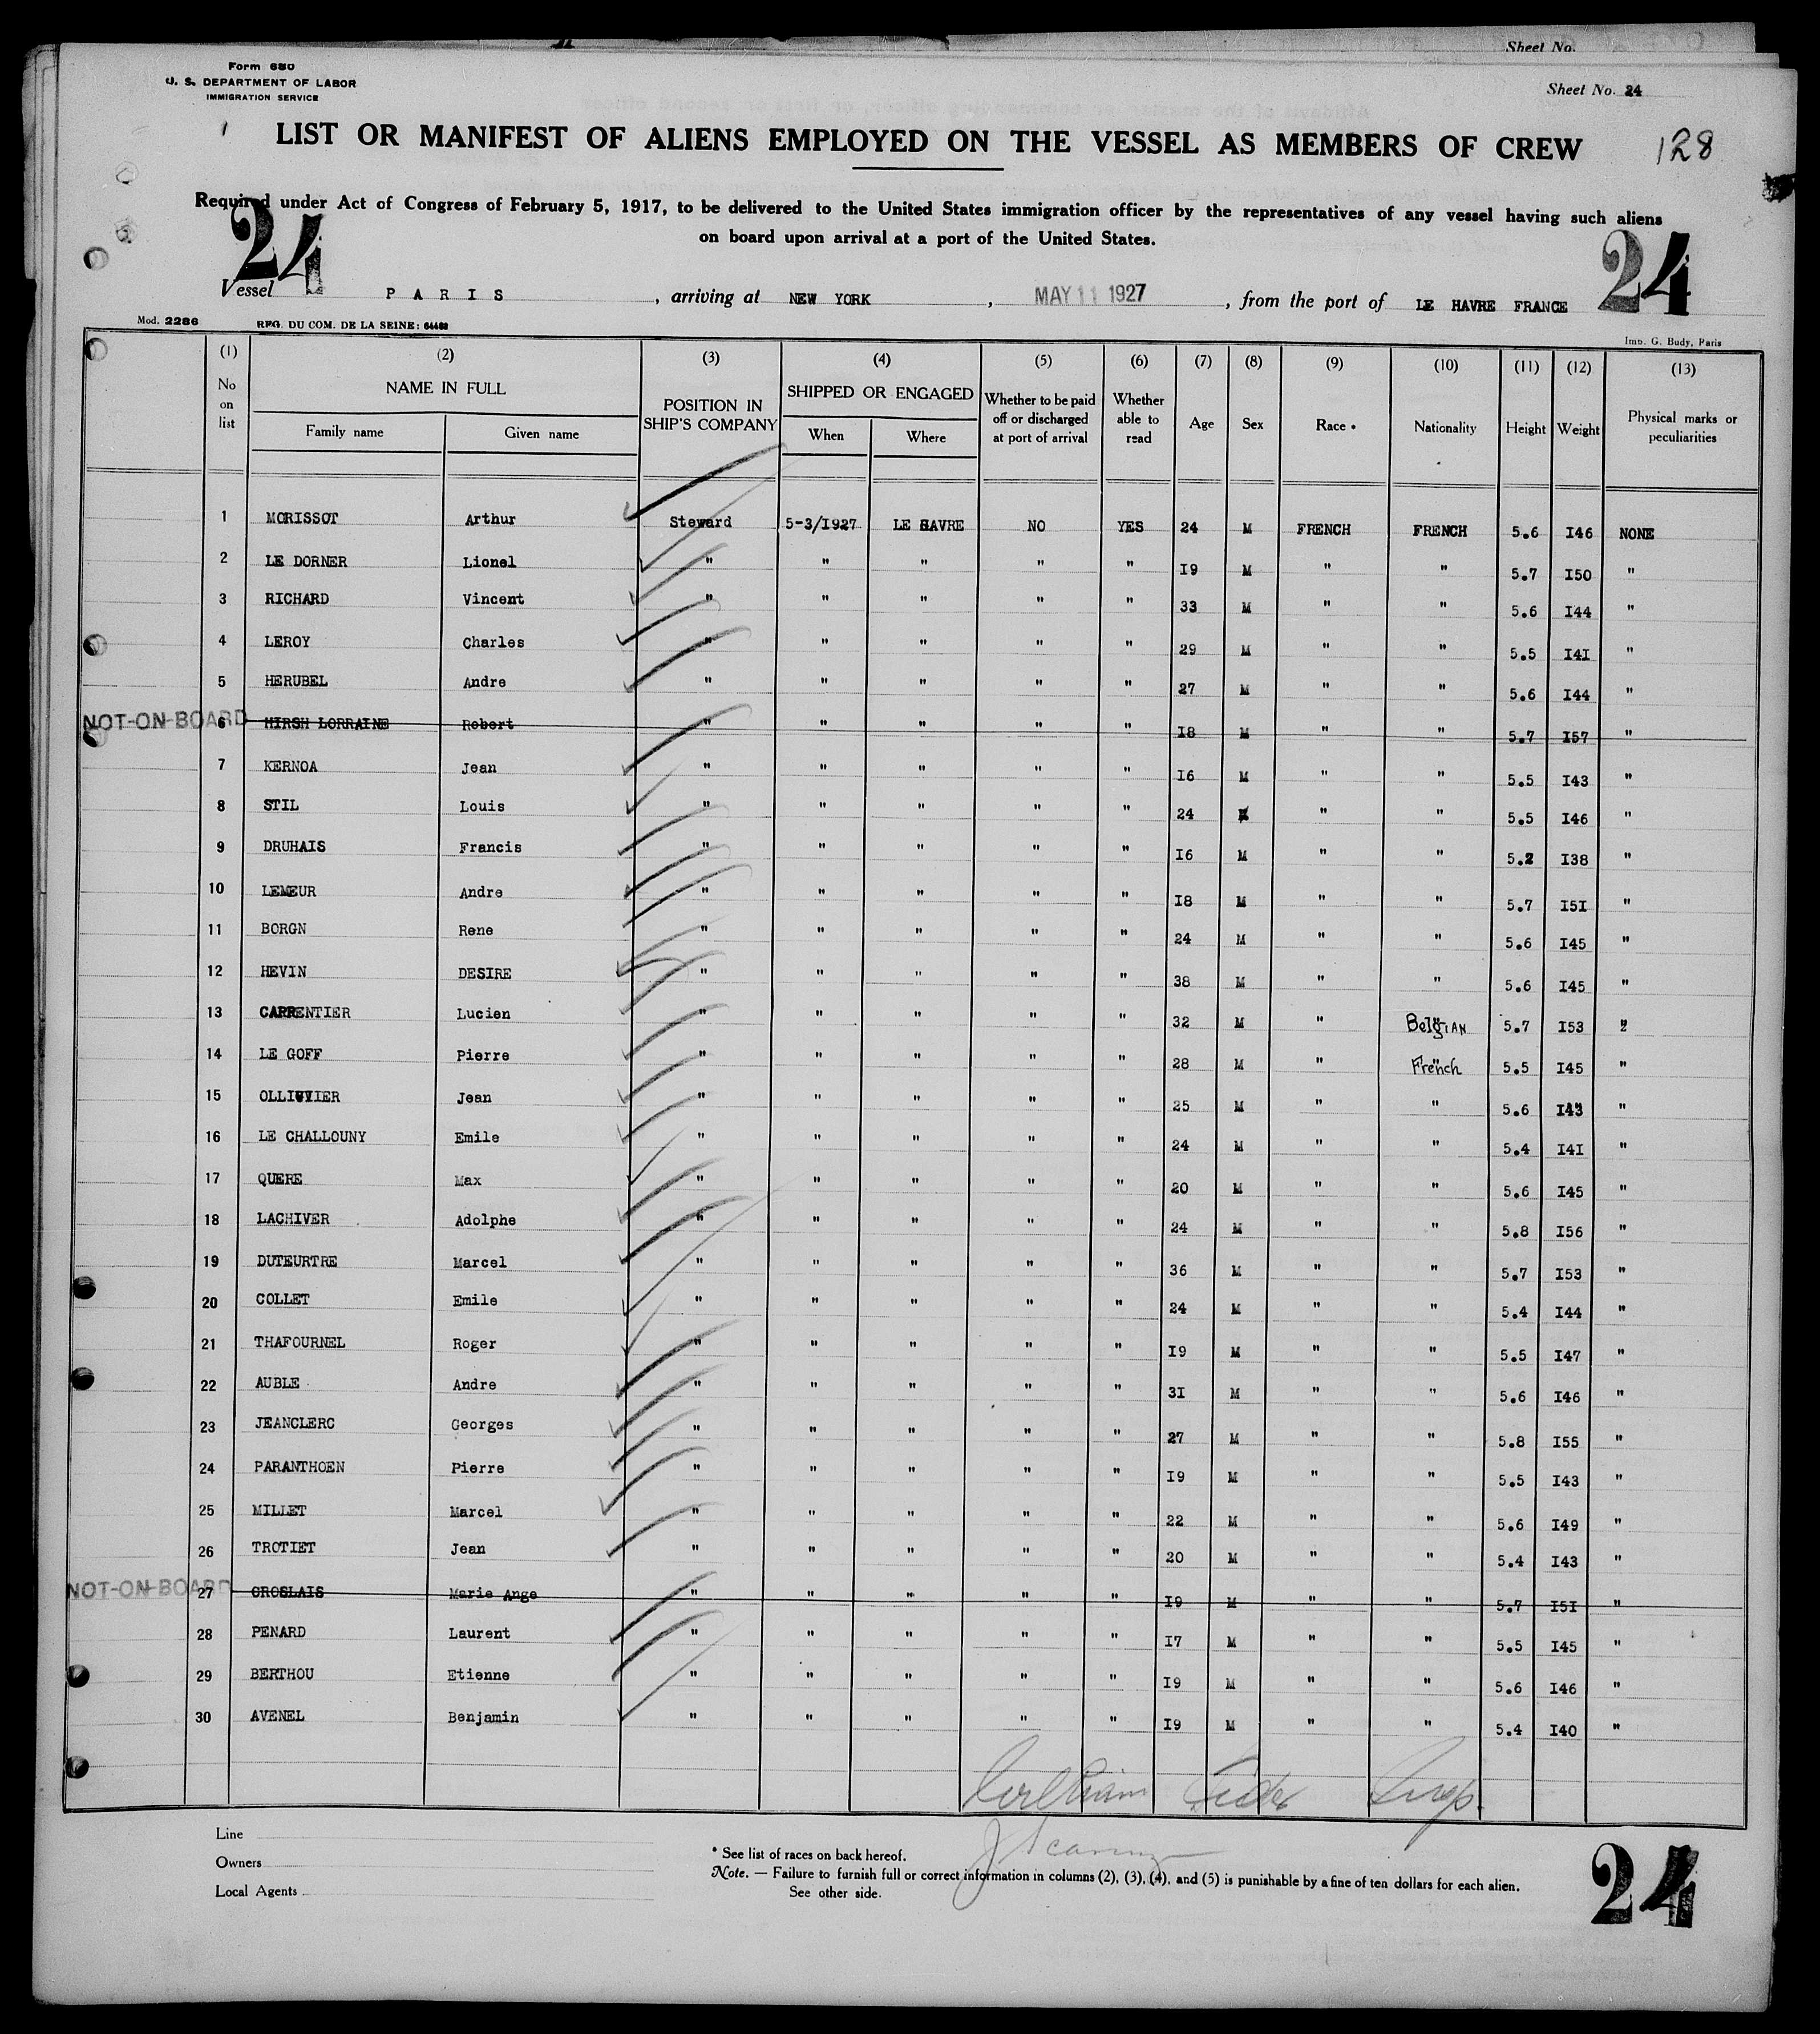 Sheet No.
Form 680
U. S. DEPARTMENT OF LABOR
IMMIGRATION SERVICE
Sheet No. 24
LIST OR MANIFEST OF ALIENS EMPLOYED ON THE VESSEL AS MEMBERS OF CREW
128
Required under Act of Congress of February 5, 1917, to be delivered to the United States immigration officer by the representatives of any vessel having such aliens
on board upon arrival at a port of the United States.
24 24
Vessel PARIS , arriving at NEW YORK , MAY 11 1927 , from the port of LE HAVRE FRANCE
Mod. 2286 REG. DU COM. DE LA SEINE: 64462 Imp. G. Budy, Paris
(1) (2) (3) (4) (5) (6) (7) (8) (9) (10) (11) (12) (13)
No on list NAME IN FULL POSITION IN SHIP'S COMPANY SHIPPED OR ENGAGED Whether to be paid off or discharged at port of arrival Whether able to read Age Sex Race * Nationality Height Weight Physical marks or peculiarities
Family name Given name When Where
1 MORISSOT Arthur Steward 5-3/1927 LE HAVRE NO YES 24 M FRENCH FRENCH 5.6 I46 NONE
2 LE DORNER Lionel " " " " " I9 M " " 5.7 I50 "
3 RICHARD Vincent " " " " " 33 M " " 5.6 I44 "
4 LEROY Charles " " " " " 29 M " " 5.5 I4I "
5 HERUBEL Andre " " " " " 27 M " " 5.6 I44 "
NOT-ON-BOARD 6 HIRSH LORRAINE Robert " " " " " I8 M " " 5.7 I57 "
7 KERNOA Jean " " " " " I6 M " " 5.5 I43 "
8 STIL Louis " " " " " 24 M " " 5.5 I46 "
9 DRUHAIS Francis " " " " " I6 M " " 5.2 I38 "
10 LEMEUR Andre " " " " " I8 M " " 5.7 I5I "
11 BORGN Rene " " " " " 24 M " " 5.6 I45 "
12 HEVIN DESIRE " " " " " 38 M " " 5.6 I45 "
13 CARRENTIER Lucien " " " " " 32 M " Belgian 5.7 I53 "
14 LE GOFF Pierre " " " " " 28 M " French 5.5 I45 "
15 OLLIVIER Jean " " " " " 25 M " " 5.6 I43 "
16 LE CHALLOUNY Emile " " " " " 24 M " " 5.4 I4I "
17 QUERE Max " " " " " 20 M " " 5.6 I45 "
18 LACHIVER Adolphe " " " " " 24 M " " 5.8 I56 "
19 DUTEURTRE Marcel " " " " " 36 M " " 5.7 I53 "
20 COLLET Emile " " " " " 24 M " " 5.4 I44 "
21 THAFOURNEL Roger " " " " " I9 M " " 5.5 I47 "
22 AUBLE Andre " " " " " 3I M " " 5.6 I46 "
23 JEANCLERC Georges " " " " " 27 M " " 5.8 I55 "
24 PARANTHOEN Pierre " " " " " I9 M " " 5.5 I43 "
25 MILLET Marcel " " " " " 22 M " " 5.6 I49 "
26 TROTIET Jean " " " " " 20 M " " 5.4 I43 "
NOT-ON-BOARD 27 GROSLAIS Marie Ange " " " " " I9 M " " 5.7 I5I "
28 PENARD Laurent " " " " " I7 M " " 5.5 I45 "
29 BERTHOU Etienne " " " " " I9 M " " 5.6 I46 "
30 AVENEL Benjamin " " " " " I9 M " " 5.4 I40 "
William Insp.
Line
Owners
Local Agents
* See list of races on back hereof.
Note. — Failure to furnish full or correct information in columns (2), (3), (4), and (5) is punishable by a fine of ten dollars for each alien.
See other side.
24